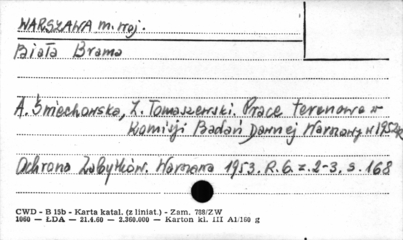 WARSZAWA m. woj.
Biała Brama
A. Śmiechowska, Z. Tomaszewski. Prace terenowe w
Komisji Badań Dawnej Warszawy w 1952 R
Ochrona Zabytków. Warszawa 1953. R. 6. z. 2-3, s. 168
CWD - B 15b - Karta katal. (z liniat.) - Zam. 788/ZW
1060 — ŁDA — 21.4.60 — 2.360.000 — Karton kl. III A1/160 g